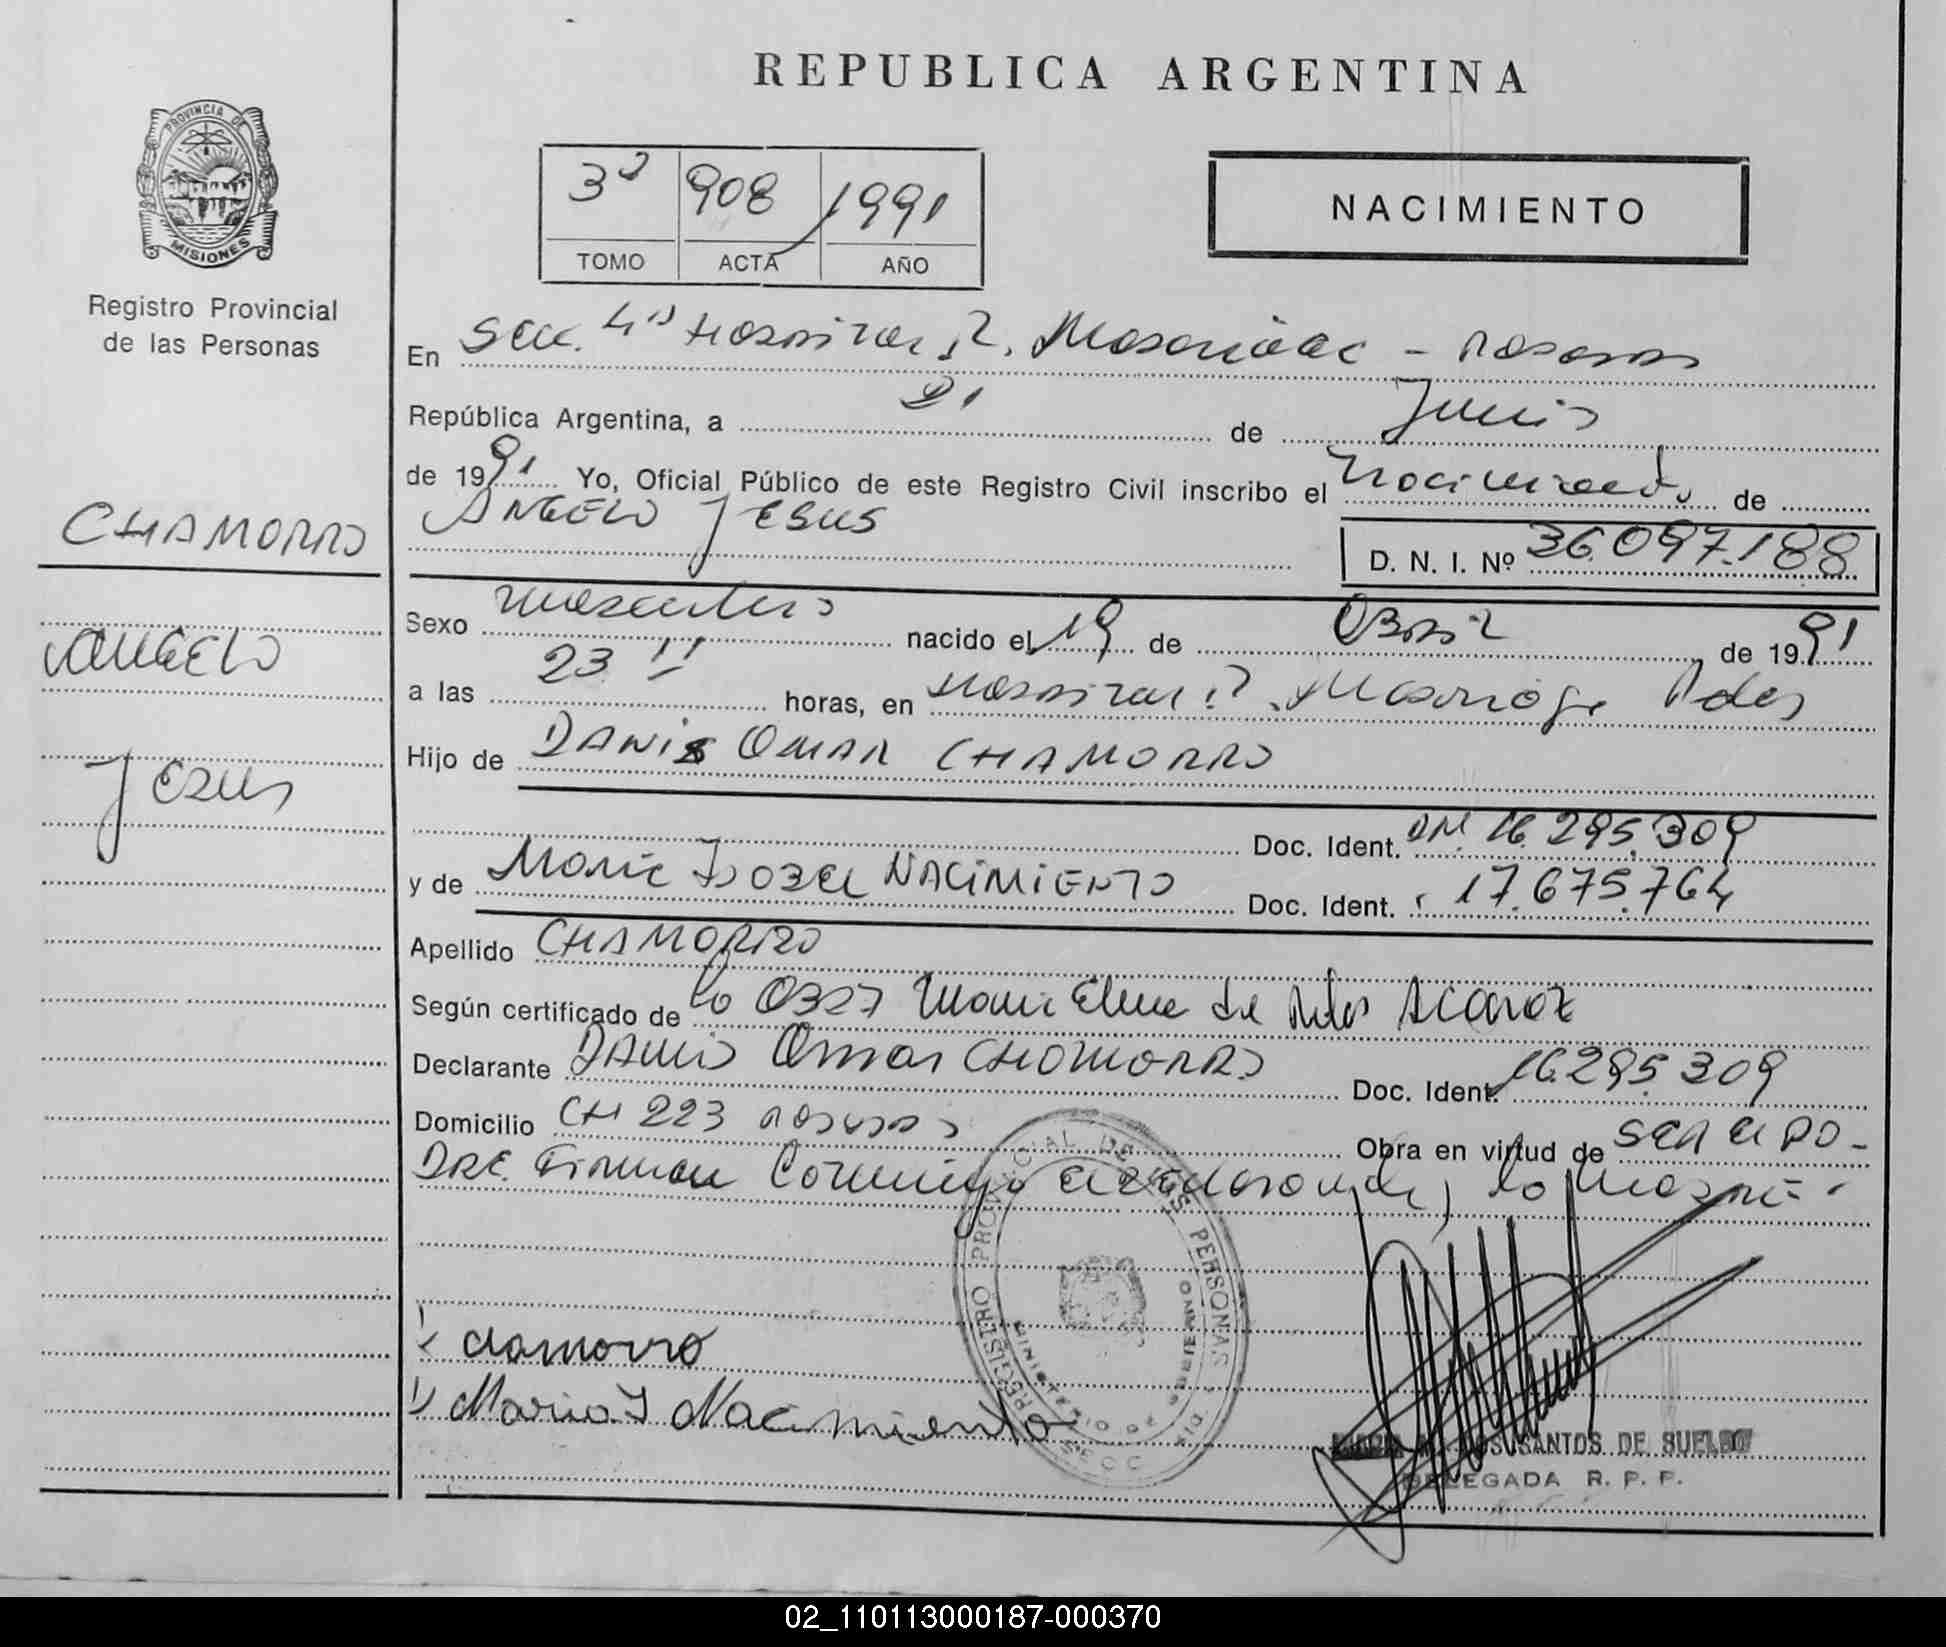 REPUBLICA ARGENTINA
PROVINCIA DE MISIONES
Registro Provincial
de las Personas
3º 908 1991
TOMO ACTA AÑO
NACIMIENTO
En Secc. 4ª Hospital R. Madariaga - Posadas
República Argentina, a 21 de Junio
de 1991 Yo, Oficial Público de este Registro Civil inscribo el nacimiento de
ANGELO JESUS
D. N. I. Nº 36.097.188
CHAMORRO
ANGELO
JESUS
Sexo masculino nacido el 19 de Abril de 1991
a las 23 horas, en Hospital R. Madariaga Pdas
Hijo de DANIS OMAR CHAMORRO
Doc. Ident. DNI. 16.295.309
y de Maria Isabel NACIMIENTO Doc. Ident. 17.675.764
Apellido CHAMORRO
Según certificado de la Obst Maria Elena de Alcaraz
Declarante DANIS Omar CHAMORRO Doc. Ident. 16.295.309
Domicilio CH 223 Posadas Obra en virtud de ser el PA-
DRE. Firman Conmigo el declarante y la madre.
chamorro
Maria I Nacimiento
REGISTRO PROVINCIAL DE LAS PERSONAS
MINISTERIO DE GOBIERNO
SANTOS DE SUELDO
DELEGADA R. P. P.
02_110113000187-000370